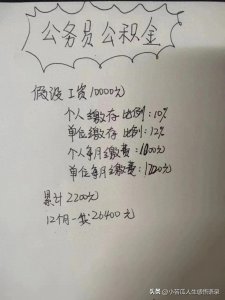 公务员公积金
假设工资10000元
个人缴存比例:10%
单位缴存比例:12%
个人每月缴费:1000元
单位每月缴费:1200元
累计2200元
12个月一共26400元
头条 @小苦瓜人生感悟语录